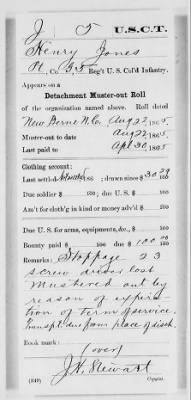 J 5 U.S.C.T.
Henry Jones
Pt., Co. G, 35 Reg't U. S. Col'd Infantry.
Appears on a
Detachment Muster-out Roll
of the organization named above. Roll dated
New Berne N.C. Aug 22, 1865
Muster-out to date Aug 22, 1865
Last paid to Apl 30, 1865
Clothing account:
Last settled, 186 ; drawn since $ 30 29/100
Due soldier $ 100; due U. S. $ 100
Am't for cloth'g in kind or money adv'd $ 100
Due U. S. for arms, equipments, &c., $ 100
Bounty paid $ 100; due $ 100 00/100
Remarks: Stoppage 23
screw driver lost
Mustered out by
reason of expira
tion of term of service.
Transpt. due from place of disch.
Book mark:
(over)
J. H. Stewart
(340) Copyist.